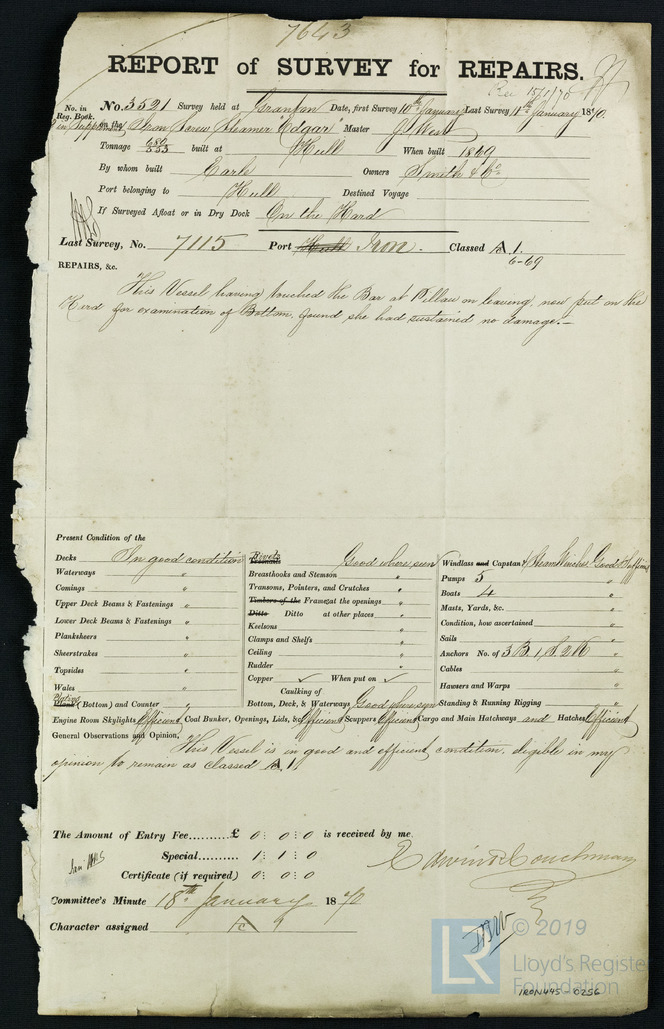 7643
REPORT of SURVEY for REPAIRS.
Rec 15/1/70
No. in Reg. Book.
No. 3521 Survey held at Granton Date, first Survey 10th January Last Survey 11th January 1870.
in Supplement on the Iron Screw Steamer "Edgar" Master J West
Tonnage 680 555 built at Hull When built 1869
By whom built Earle Owners Smith & Co
Port belonging to Hull Destined Voyage
If Surveyed Afloat or in Dry Dock On the Hard
Last Survey, No. 7115 Port Hull Iron. Classed A 1.
6-69
REPAIRS, &c.
This Vessel having touched the Bar at Pillau on leaving, now put on the
Hard for examination of Bottom, found she had sustained no damage.—
Present Condition of the
Decks In good condition
Waterways "
Comings "
Upper Deck Beams & Fastenings "
Lower Deck Beams & Fastenings "
Planksheers "
Sheerstrakes "
Topsides "
Wales "
Plating Plank (Bottom) and Counter "
Rivets Treenails Good where seen
Breasthooks and Stemson "
Transoms, Pointers, and Crutches "
Timbers of the Frames at the openings "
Ditto Ditto at other places "
Keelsons "
Clamps and Shelfs "
Ceiling "
Rudder "
Copper ✓ When put on ✓
Caulking of
Bottom, Deck, & Waterways Good where seen
Windlass and Capstan & Steam Winches Good & Efficient
Pumps 5 "
Boats 4 "
Masts, Yards, &c. "
Condition, how ascertained "
Sails "
Anchors No. of 3 B, 1 S, 2 K "
Cables "
Hawsers and Warps "
Standing & Running Rigging "
Engine Room Skylights Efficient Coal Bunker, Openings, Lids, &c. Efficient Scuppers Efficient Cargo and Main Hatchways and Hatches Efficient
General Observations and Opinion, This Vessel is in good and efficient condition, eligible in my
opinion to remain as classed A 1.
The Amount of Entry Fee..........£ 0 : 0 : 0 is received by me
Special.......... 1 : 1 : 0
Certificate (if required) 0 : 0 : 0
Committee's Minute 18th January 1870
Character assigned A 1
© 2019
LR
Lloyd's Register
Foundation
IRON445-0256